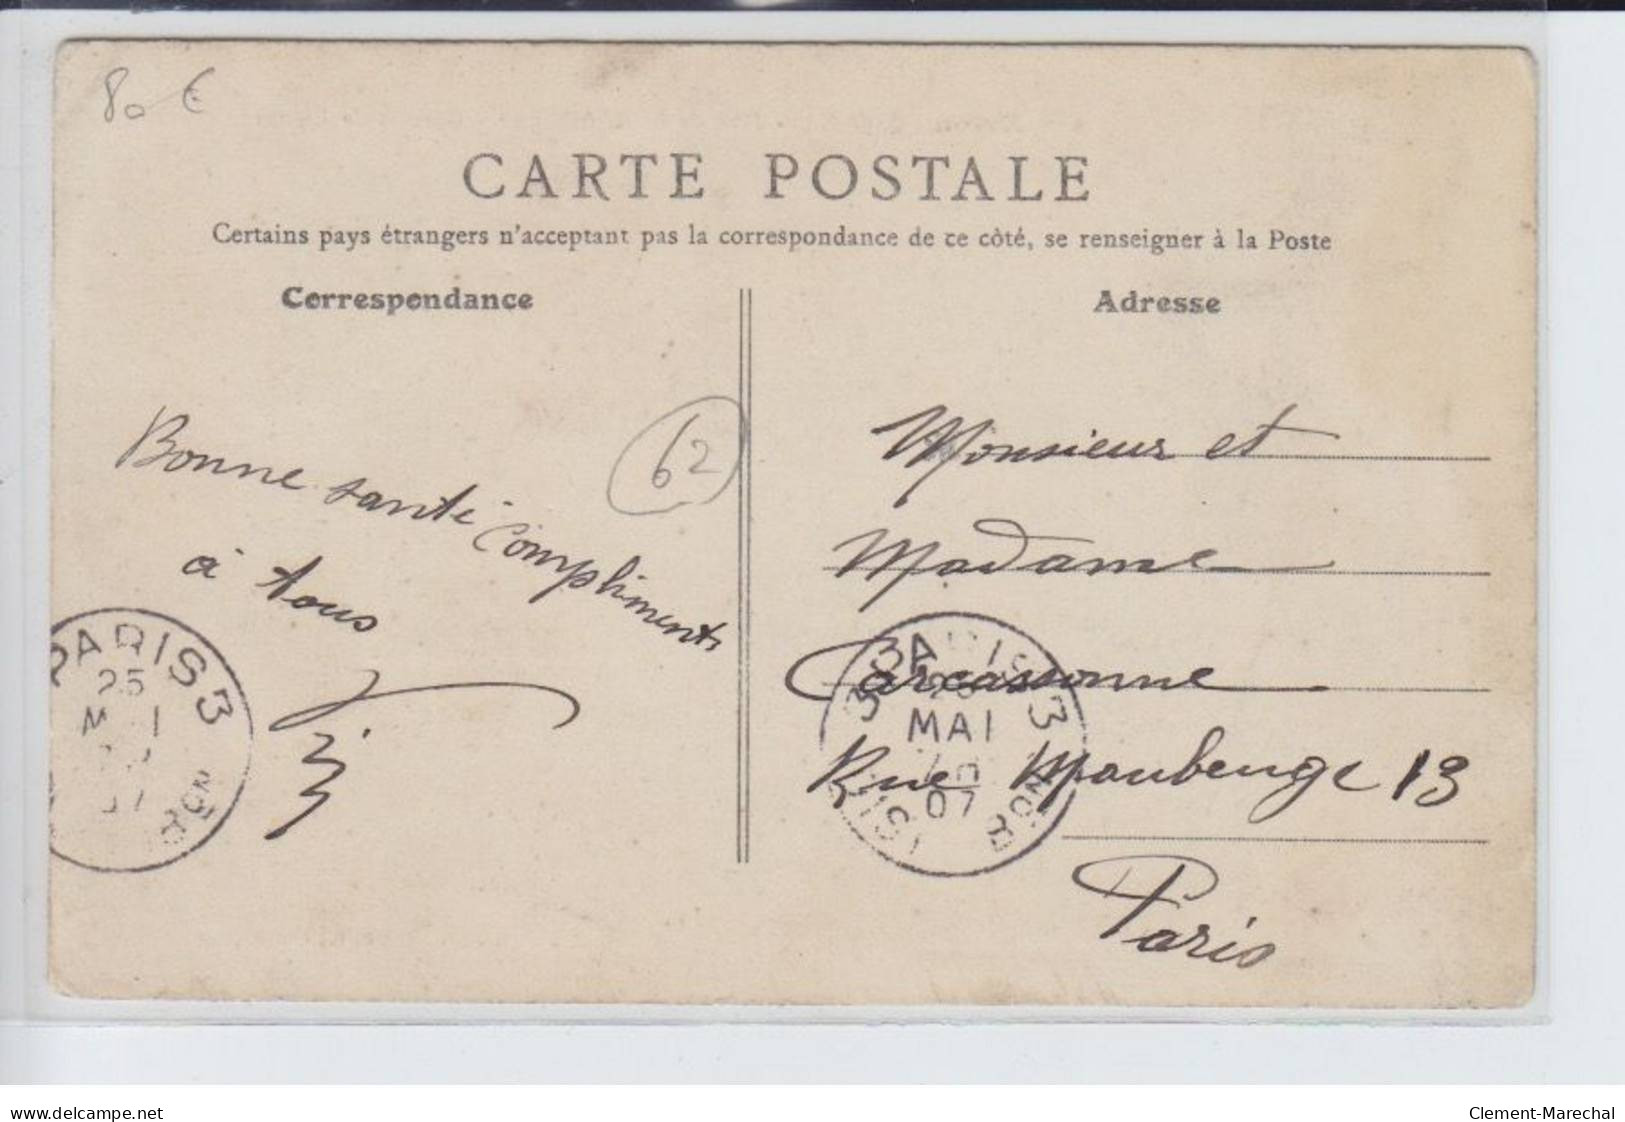 80 €
CARTE POSTALE
Certains pays étrangers n'acceptant pas la correspondance de ce côté, se renseigner à la Poste
Correspondance
Adresse
Bonne santé compliments
à tous
62
Monsieur et
Madame
Carcassonne
Rue Maubeuge 13
Paris
PARIS 3
25
07
PARIS 3
MAI
07
www.delcampe.net
Clement-Marechal